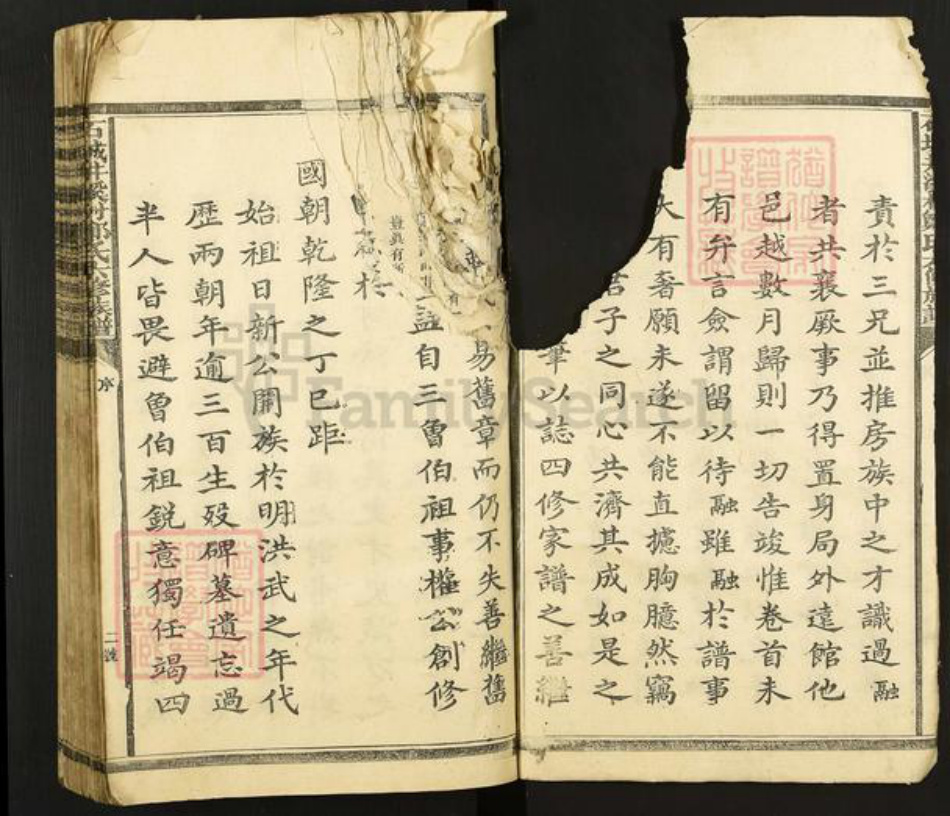 責於三兄並推房族中之才識過融
者共襄厥事乃得置身局外遠館他
邑越數月歸則一切告竣惟卷首未
有弁言僉謂留以待融雖融於譜事
大有奢願未遂不能直攄胸臆然竊
君子之同心共濟其成如是之
筆以誌四修家譜之善繼
易舊章而仍不失善繼舊
益自三魯伯祖事權公創修
於
國朝乾隆之丁巳距
始祖日新公開族於明洪武之年代
歷兩朝年逾三百生歿碑墓遺忘過
半人皆畏避魯伯祖銳意獨任竭四
石城井溪村鄭氏六修族譜
序
二號
FamilySearch